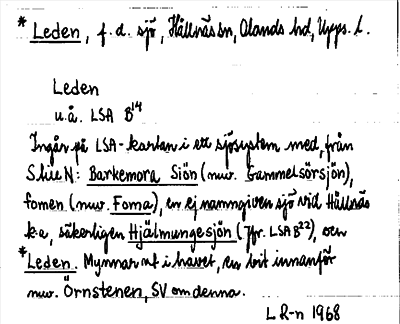 * Leden, f.d. sjö, Hållnäs sn, Olands hd, Upps. l.
Leden
u.å. LSA B¹⁴
Ingår på LSA-kartan i ett sjösystem med, från
S till N: Barkemora Siön (nuv. Gammelsörsjön),
fomen (nuv. Foma), en ej namngiven sjö vid Hållnäs
k:a, säkerligen Hjälmungesjön (Jfr. LSA B²²), och
* Leden. Mynnar ut i havet, en bit innanför
nuv. Örnstenen, SV om denna.
L R-n 1968